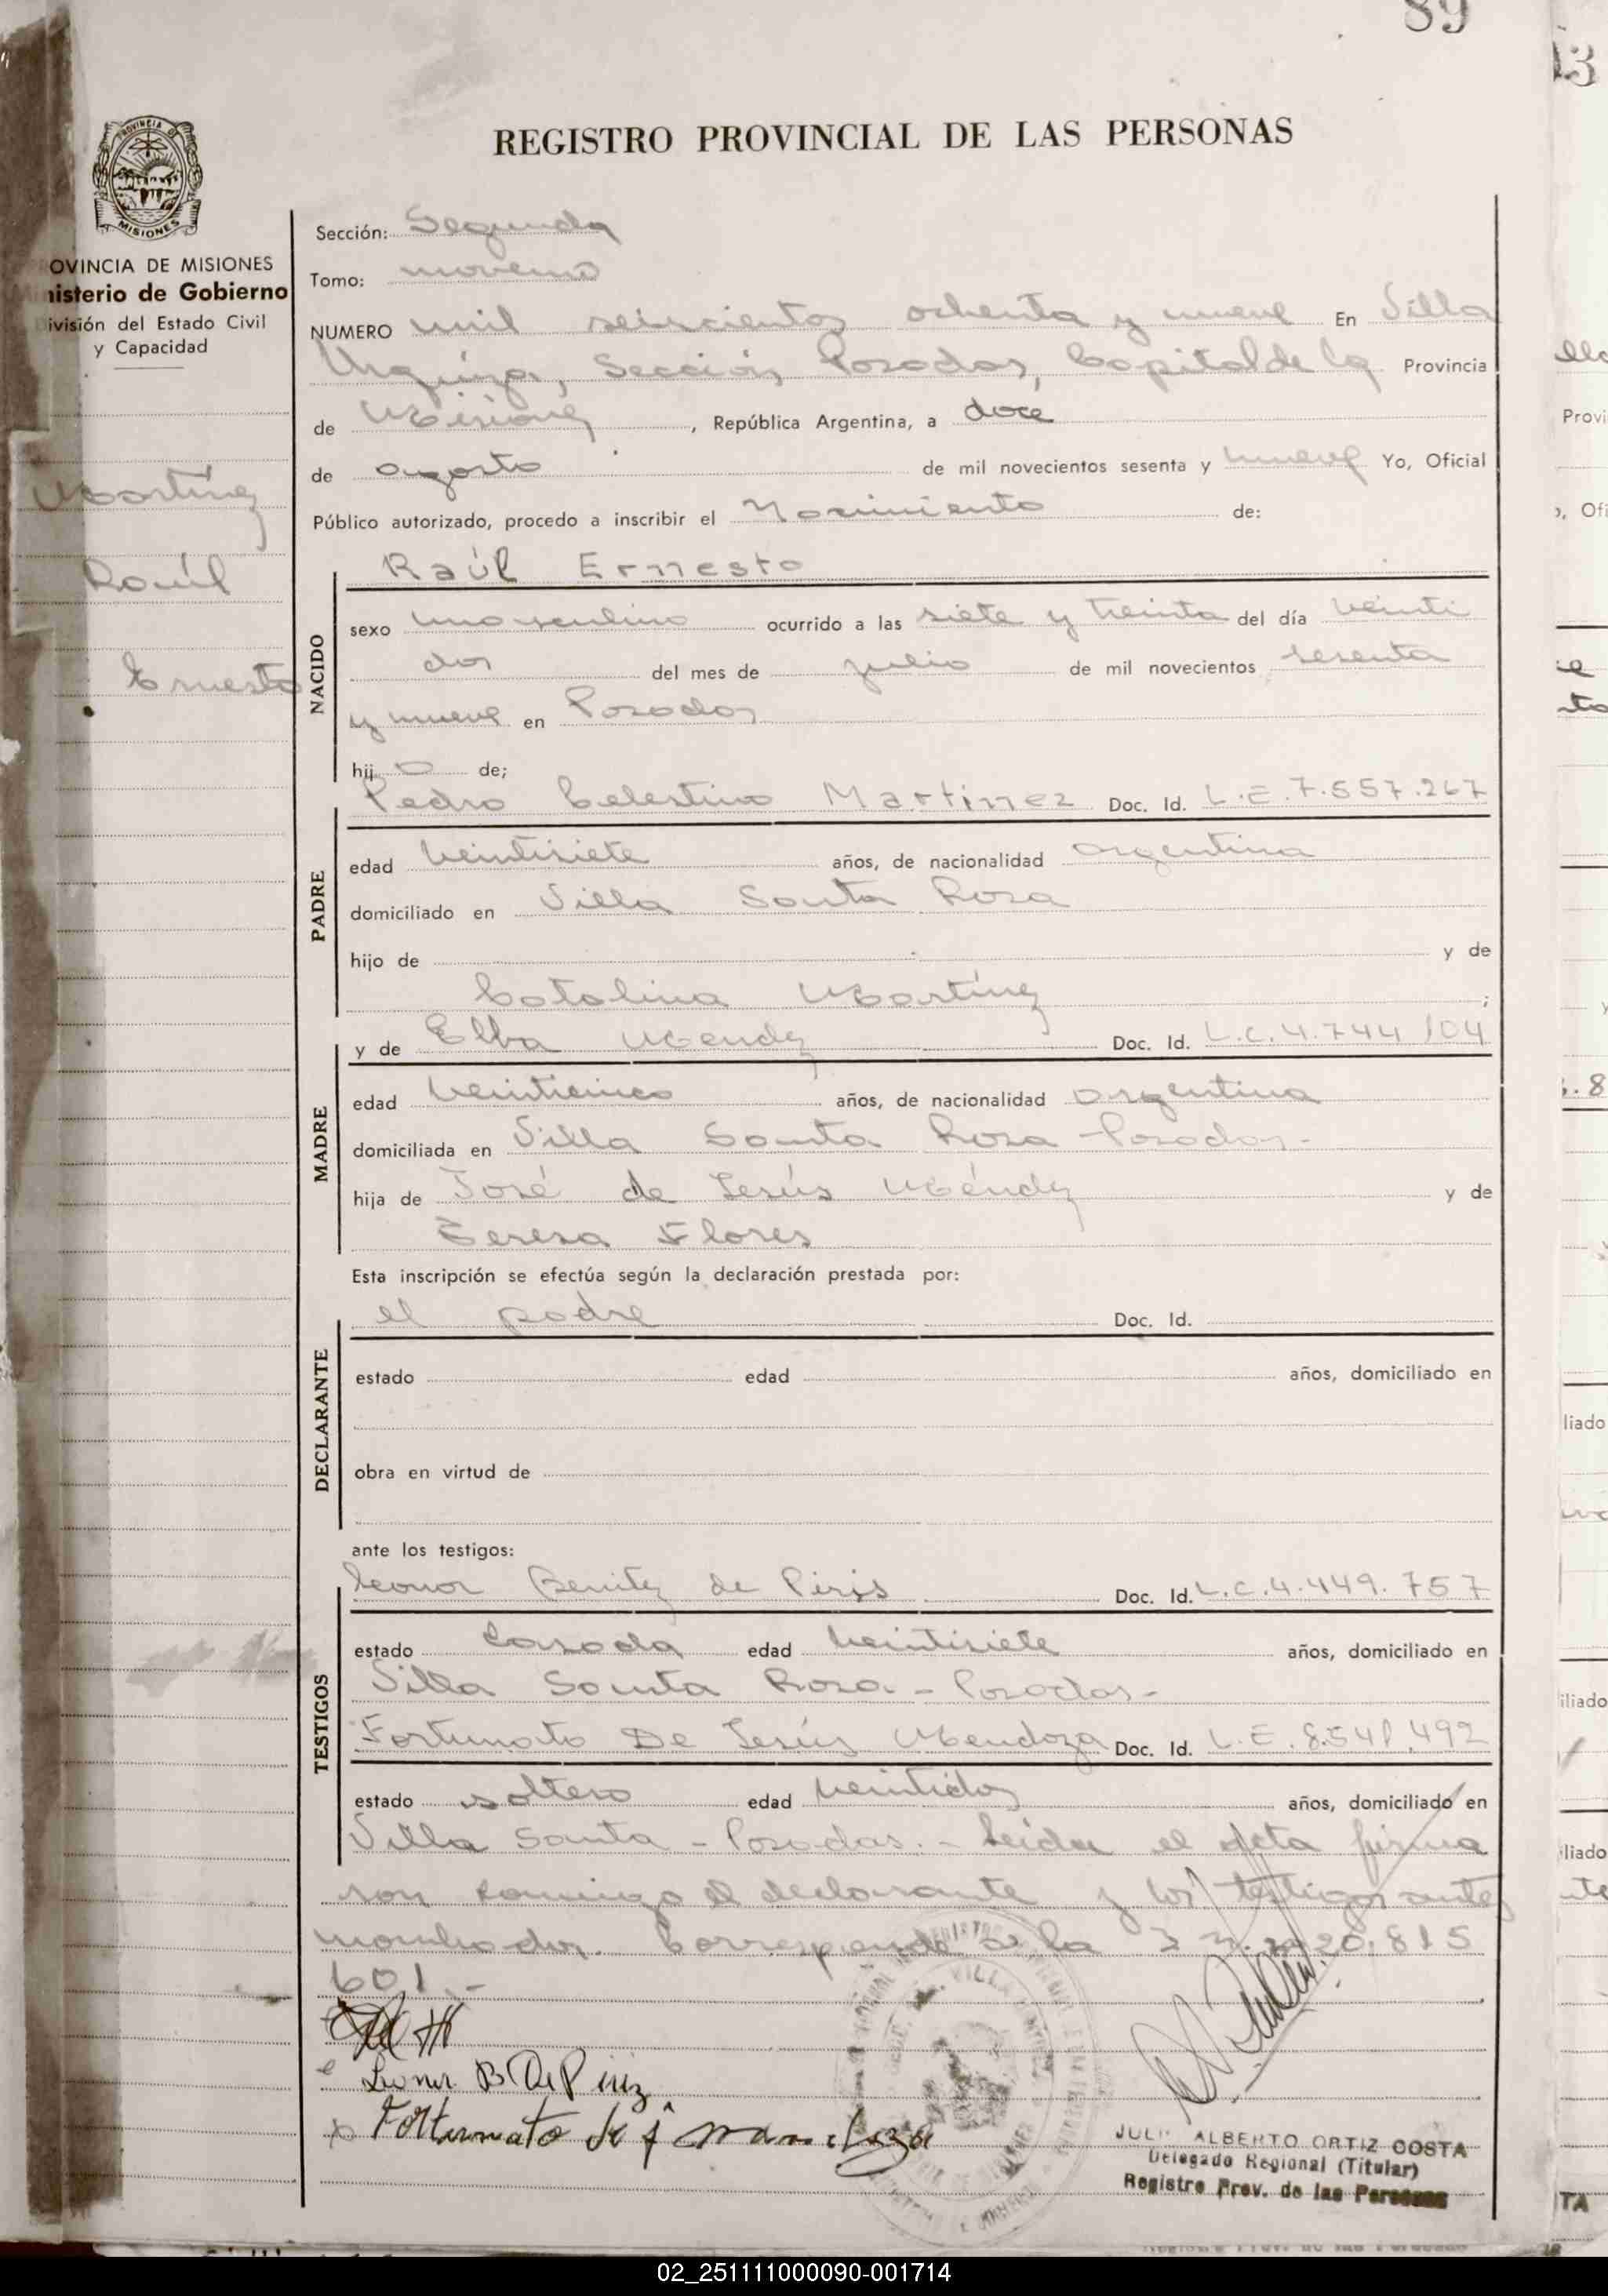 89
REGISTRO PROVINCIAL DE LAS PERSONAS
PROVINCIA DE
MISIONES
OVINCIA DE MISIONES
nisterio de Gobierno
ivisión del Estado Civil
y Capacidad
Martínez
Raúl
Ernesto
Sección: Segunda
Tomo: noveno
NUMERO mil seiscientos ochenta y nueve En Villa
Urquiza, Sección Posadas, Capital de la Provincia
de Misiones, República Argentina, a doce
de agosto de mil novecientos sesenta y nueve Yo, Oficial
Público autorizado, procedo a inscribir el Nacimiento de:
Raúl Ernesto
NACIDO
sexo masculino ocurrido a las siete y treinta del día veinti
dos del mes de julio de mil novecientos sesenta
y nueve en Posadas
hijo de;
Pedro Celestino Martinez Doc. Id. L.E.7.557.267
PADRE
edad veintisiete años, de nacionalidad argentina
domiciliado en Villa Santa Rosa
hijo de y de
Catalina Martínez ;
y de Elba Mendez Doc. Id. L.C.4.744 104
MADRE
edad veinticinco años, de nacionalidad argentina
domiciliada en Villa Santa Rosa - Posadas -
hija de José de Jesús Méndez y de
Teresa Flores
Esta inscripción se efectúa según la declaración prestada por:
el padre Doc. Id.
DECLARANTE
estado edad años, domiciliado en
obra en virtud de
ante los testigos:
Leonor Benitez de Piris Doc. Id. L.C.4.449.757
TESTIGOS
estado casada edad veintisiete años, domiciliado en
Villa Santa Rosa - Posadas -
Fortunato De Jesús Mendoza Doc. Id. L.E.8.541.492
estado soltero edad veintidos años, domiciliado en
Villa Santa - Posadas. - Leida el acta firma
ron conmigo el declarante y los testigos ante
nombrados. Corresponde a la 20.815
601.-
Leonor B De Piriz
Fortunato de J mendoza
VILLA
JULIO ALBERTO ORTIZ COSTA
Delegado Regional (Titular)
Registro Prov. de las Personas
02_251111000090-001714